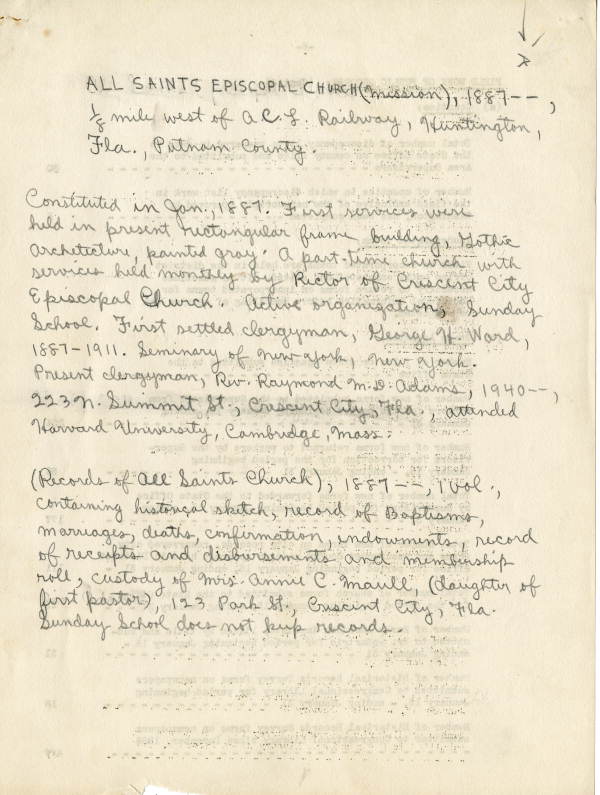 ALL SAINTS EPISCOPAL CHURCH (mission), 1887--,
1/8 mile west of A.C.L. Railway, Huntington,
Fla., Putnam County.
Constituted in Jan., 1887. First services were
held in present rectangular frame building, Gothic
Architecture, painted gray. A part-time church with
services held monthly by Rector of Crescent City
Episcopal Church. Active organization, Sunday
School. First settled clergyman, George H. Ward,
1887-1911. Seminary of New York, New York.
Present clergyman, Rev. Raymond M.D. Adams, 1940--,
223 N. Summit St., Crescent City, Fla., attended
Harvard University, Cambridge, Mass.
(Records of All Saints Church), 1887--, 1 vol.,
containing historical sketch, record of Baptisms,
marriages, deaths, confirmation, endowments, record
of receipts and disbursements and membership
roll, custody of Mrs. Annie C. Maull, (daughter of
first pastor), 123 Park St., Crescent City, Fla.
Sunday School does not keep records.